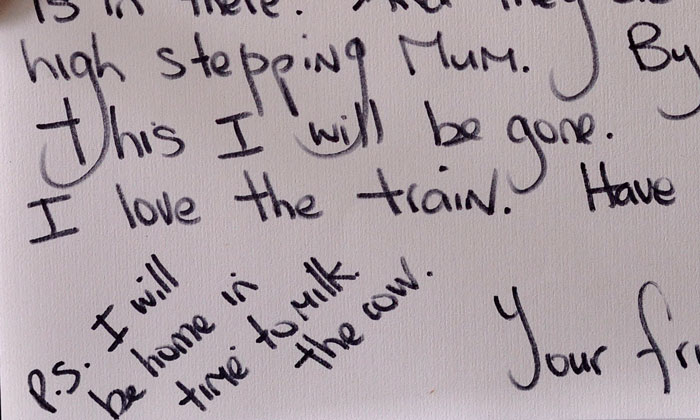 is in there.
high stepping Mum. By
this I will be gone.
I love the train. Have
P.S. I will
be home in
time to milk
the cow.
Your